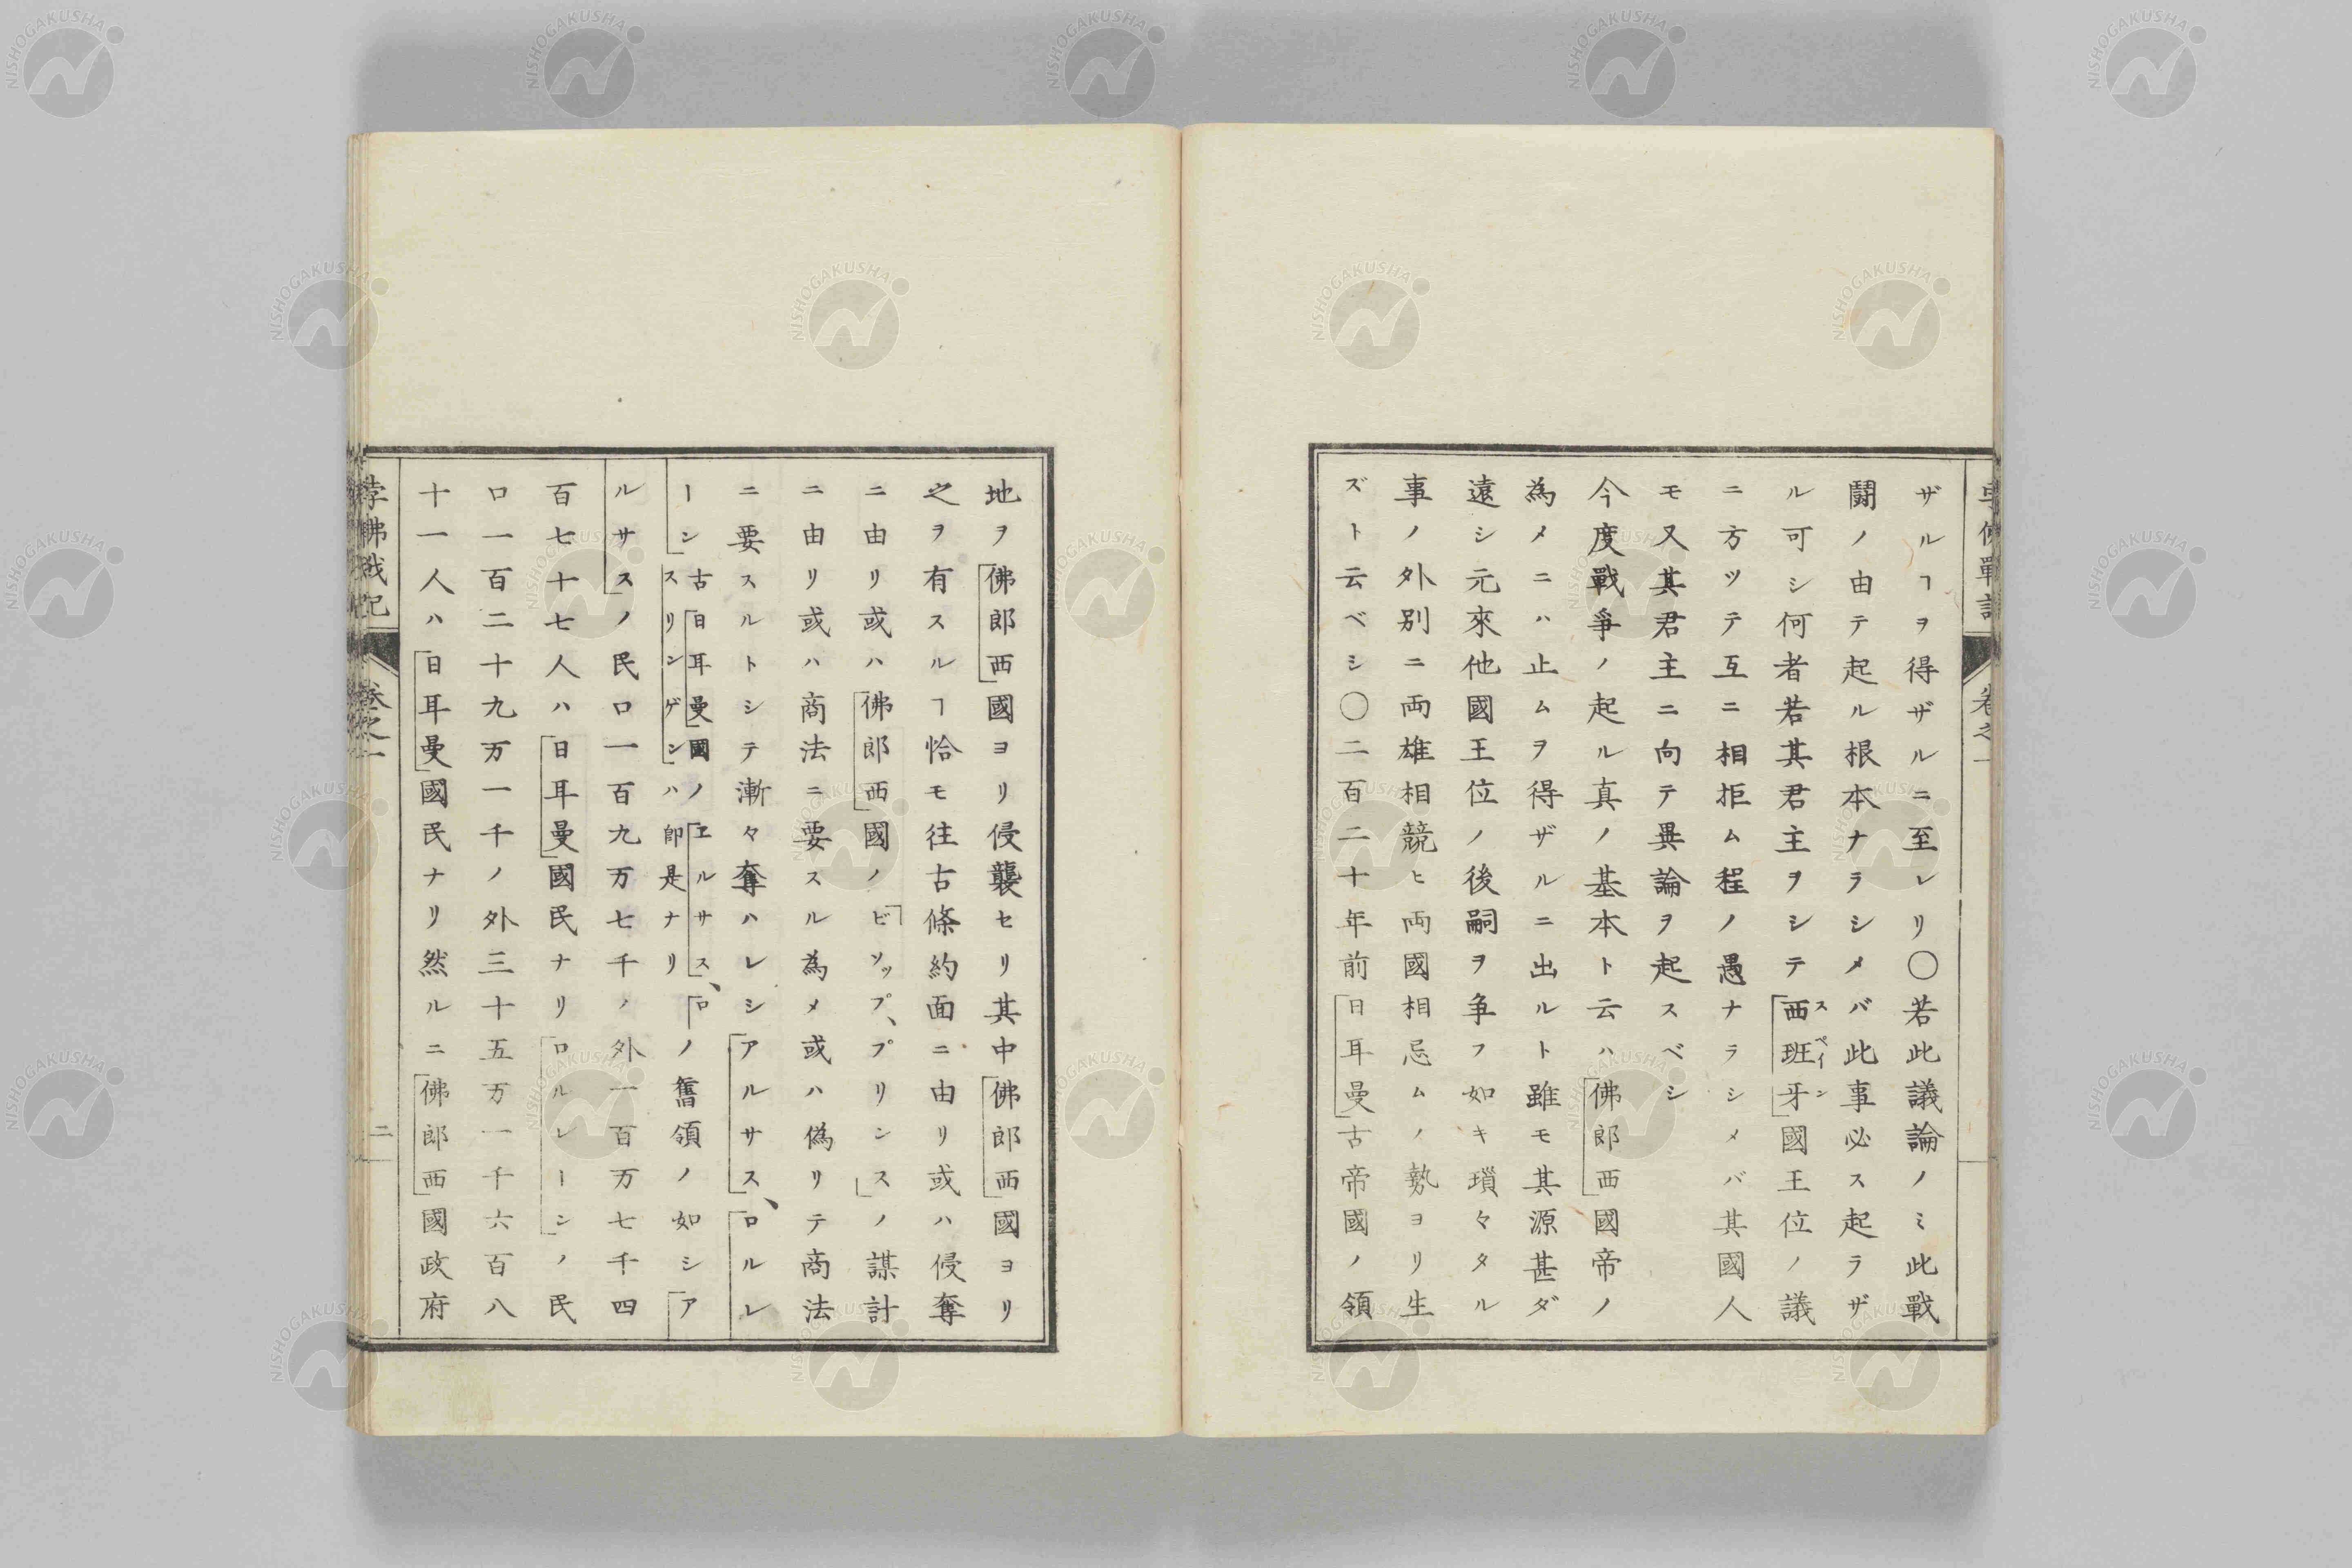 ザルヿヲ得ザルニ至レリ〇若此議論ノミ此戰
鬪ノ由テ起ル根本ナラシメバ此事必ス起ラザ
ル可シ何者若其君主ヲシテ西班牙國王位ノ議
スペイン
ニ方ツテ互ニ相拒ム程ノ愚ナラシメバ其國人
モ又其君主ニ向テ異論ヲ起スベシ
今度戰爭ノ起ル真ノ基本ト云ハ佛郎西國帝ノ
為メニハ止ムヲ得ザルニ出ルト雖モ其源甚ダ
遠シ元來他國王位ノ後嗣ヲ争フ如キ瑣々タル
事ノ外別ニ両雄相競ヒ両國相忌ムノ勢ヨリ生
ズト云ベシ〇二百二十年前日耳曼古帝國ノ領
地ヲ佛郎西國ヨリ侵襲セリ其中佛郎西國ヨリ
之ヲ有スルヿ恰モ往古條約面ニ由リ或ハ侵奪
ニ由リ或ハ佛郎西國ノビソップ、プリンスノ謀計
ニ由リ或ハ商法ニ要スル為メ或ハ偽リテ商法
ニ要スルトシテ漸々奪ハレシアルサス、ロルレ
ーシ古日耳曼國ノヱルサス、ロスリンゲンハ即是ナリノ舊領ノ如シア
ルサスノ民口一百九万七千ノ外一百万七千四
百七十七人ハ日耳曼國民ナリロルレーシノ民
口一百二十九万一千ノ外三十五万一千六百八
十一人ハ日耳曼國民ナリ然ルニ佛郎西國政府
孛佛戰記
卷之一
二